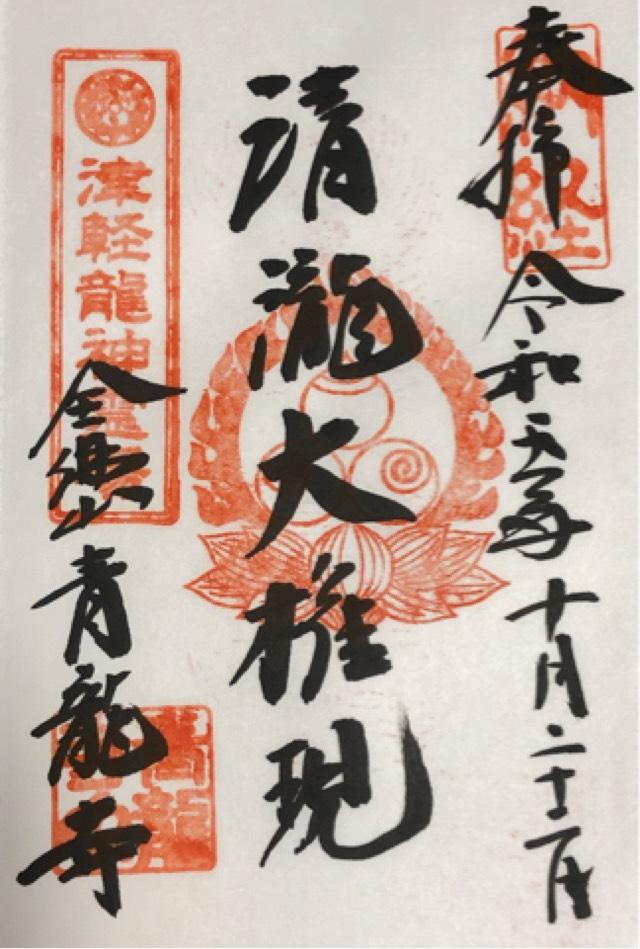 奉拝 令和元年十月二十
清瀧大権現
津軽龍神霊場
全佛山 青龍寺